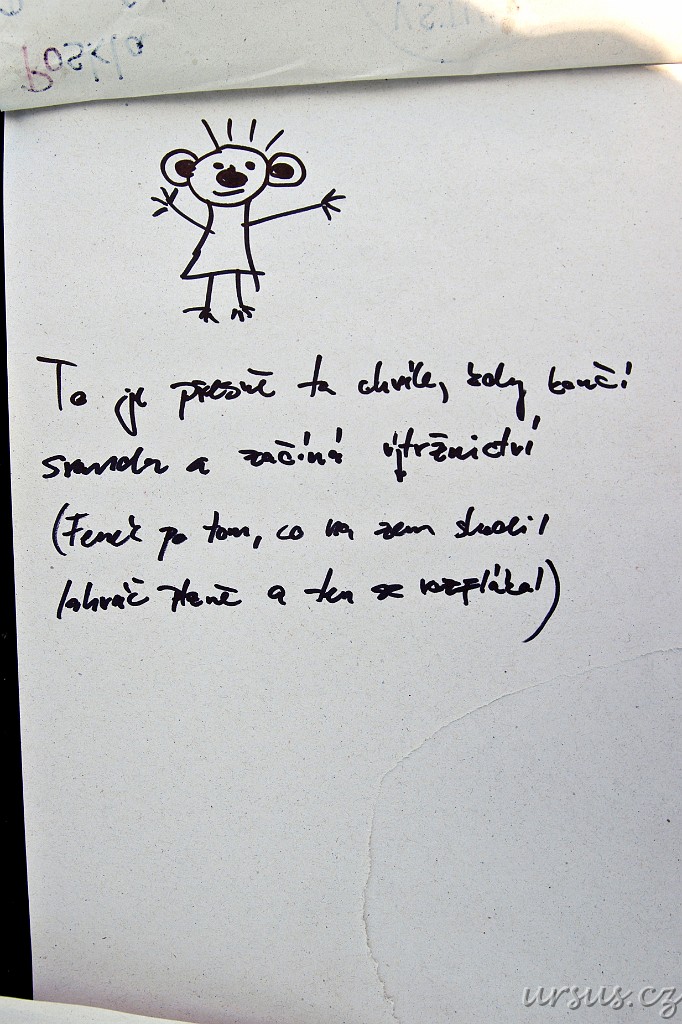 Poskla
To je přesně ta chvíle, kdy končí
sranda a začíná výtržnictví
(Fenek po tom, co na zem shodil
a ten se rozplákal)
ursus.cz